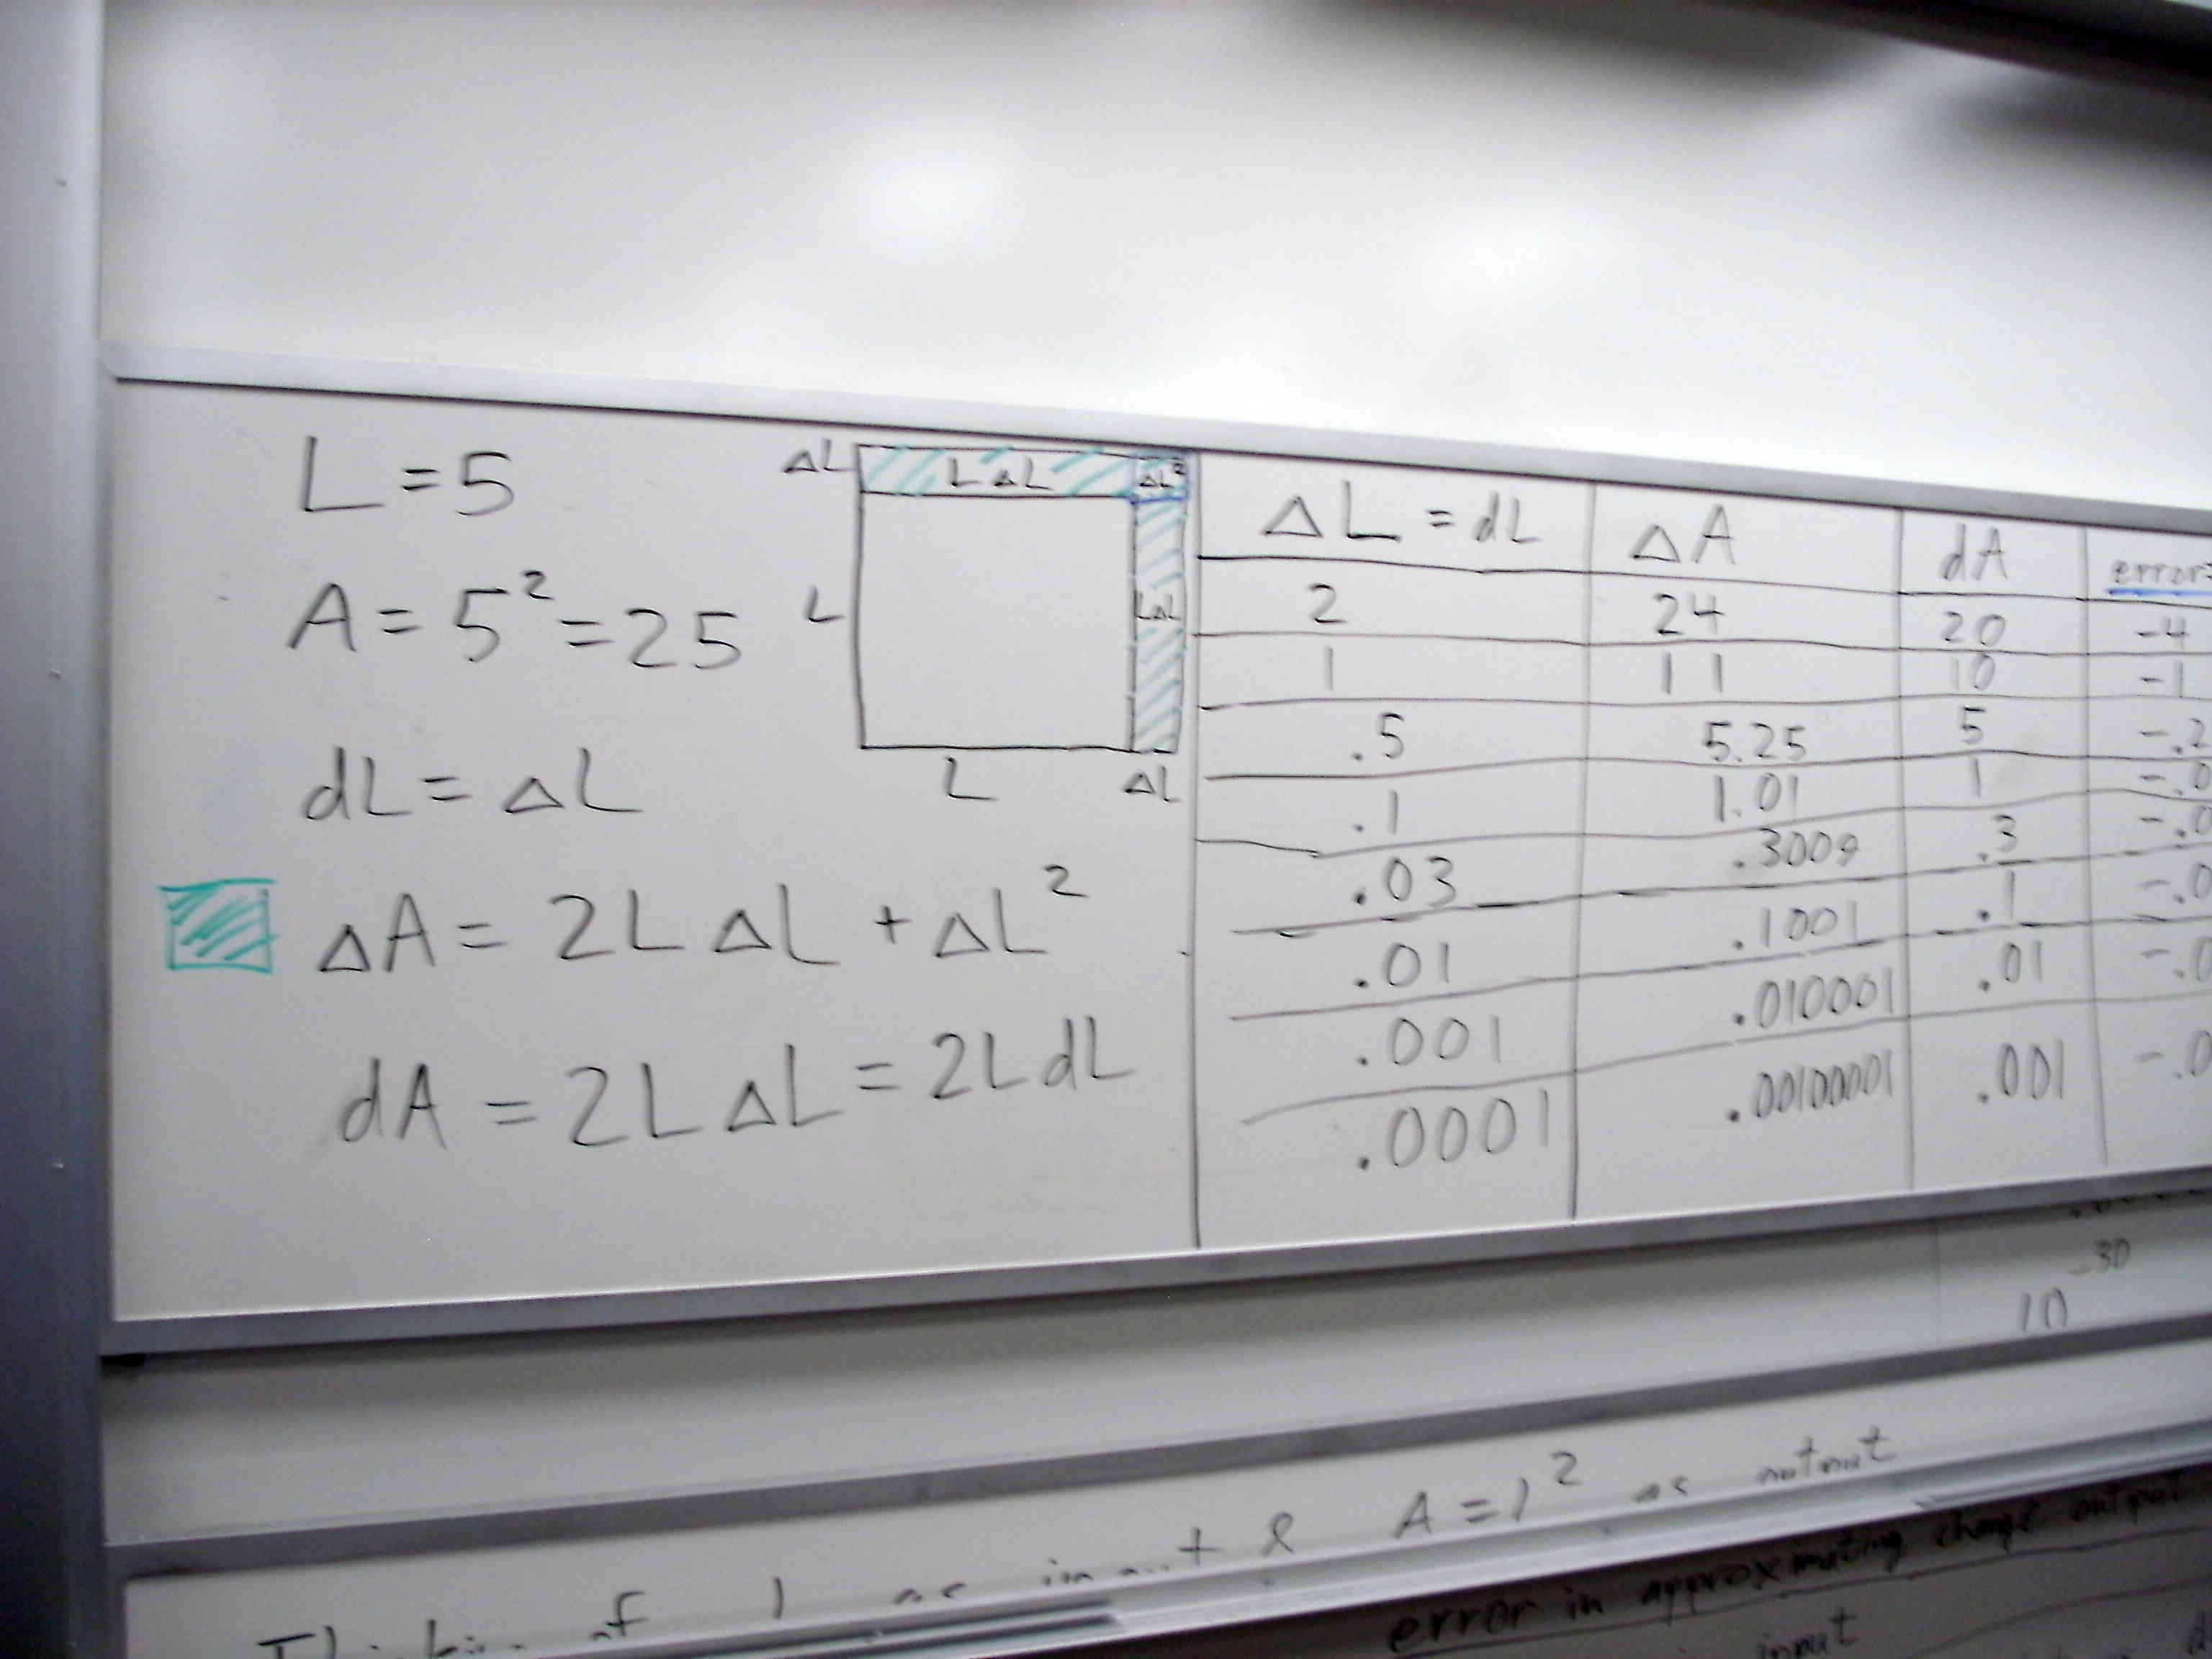 L = 5
A = 5² = 25
dL = ΔL
ΔA = 2L ΔL + ΔL²
dA = 2L ΔL = 2L dL
ΔL L ΔL ΔL²
L LΔL
L ΔL
ΔL = dL ΔA dA error=
2 24 20 -4
1 11 10 -1
.5 5.25 5 -.2
.1 1.01 1 -.0
.03 .3009 .3 -.0
.01 .1001 .1 -.0
.001 .010001 .01 -.0
.0001 .00100001 .001 -.0
10⁻³⁰
of as & A = L² as output
error in approximating change output
input